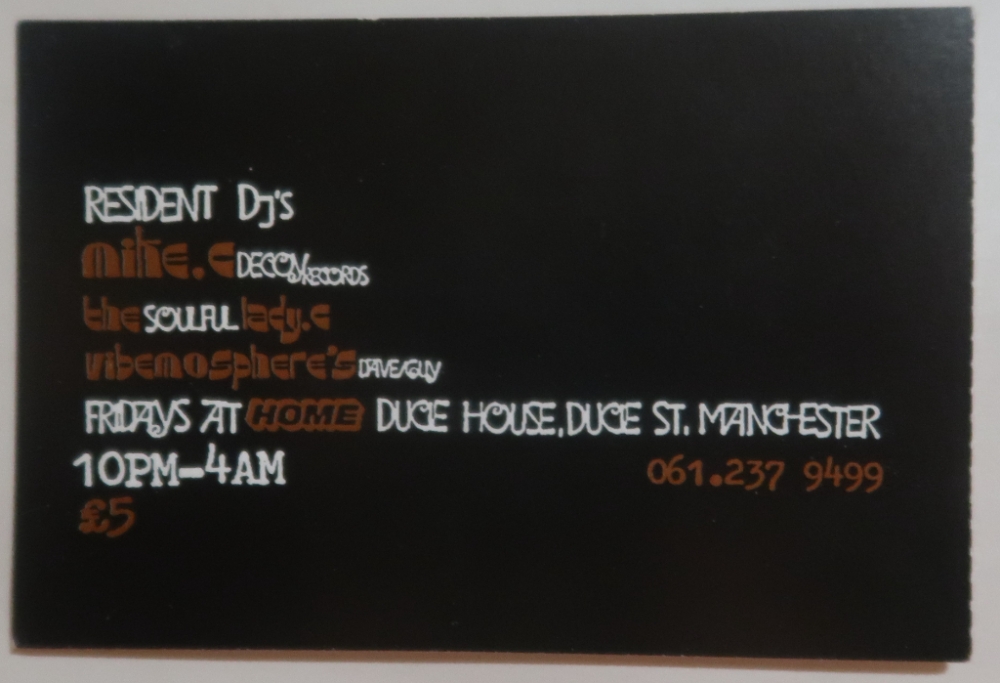 RESIDENT DJ'S
mike.e DECON RECORDS
the SOULFUL lady.e
vibemosphere's DAVE/GUY
FRIDAYS AT HOME DUCIE HOUSE, DUCIE ST. MANCHESTER
10PM-4AM 061.237 9499
£5